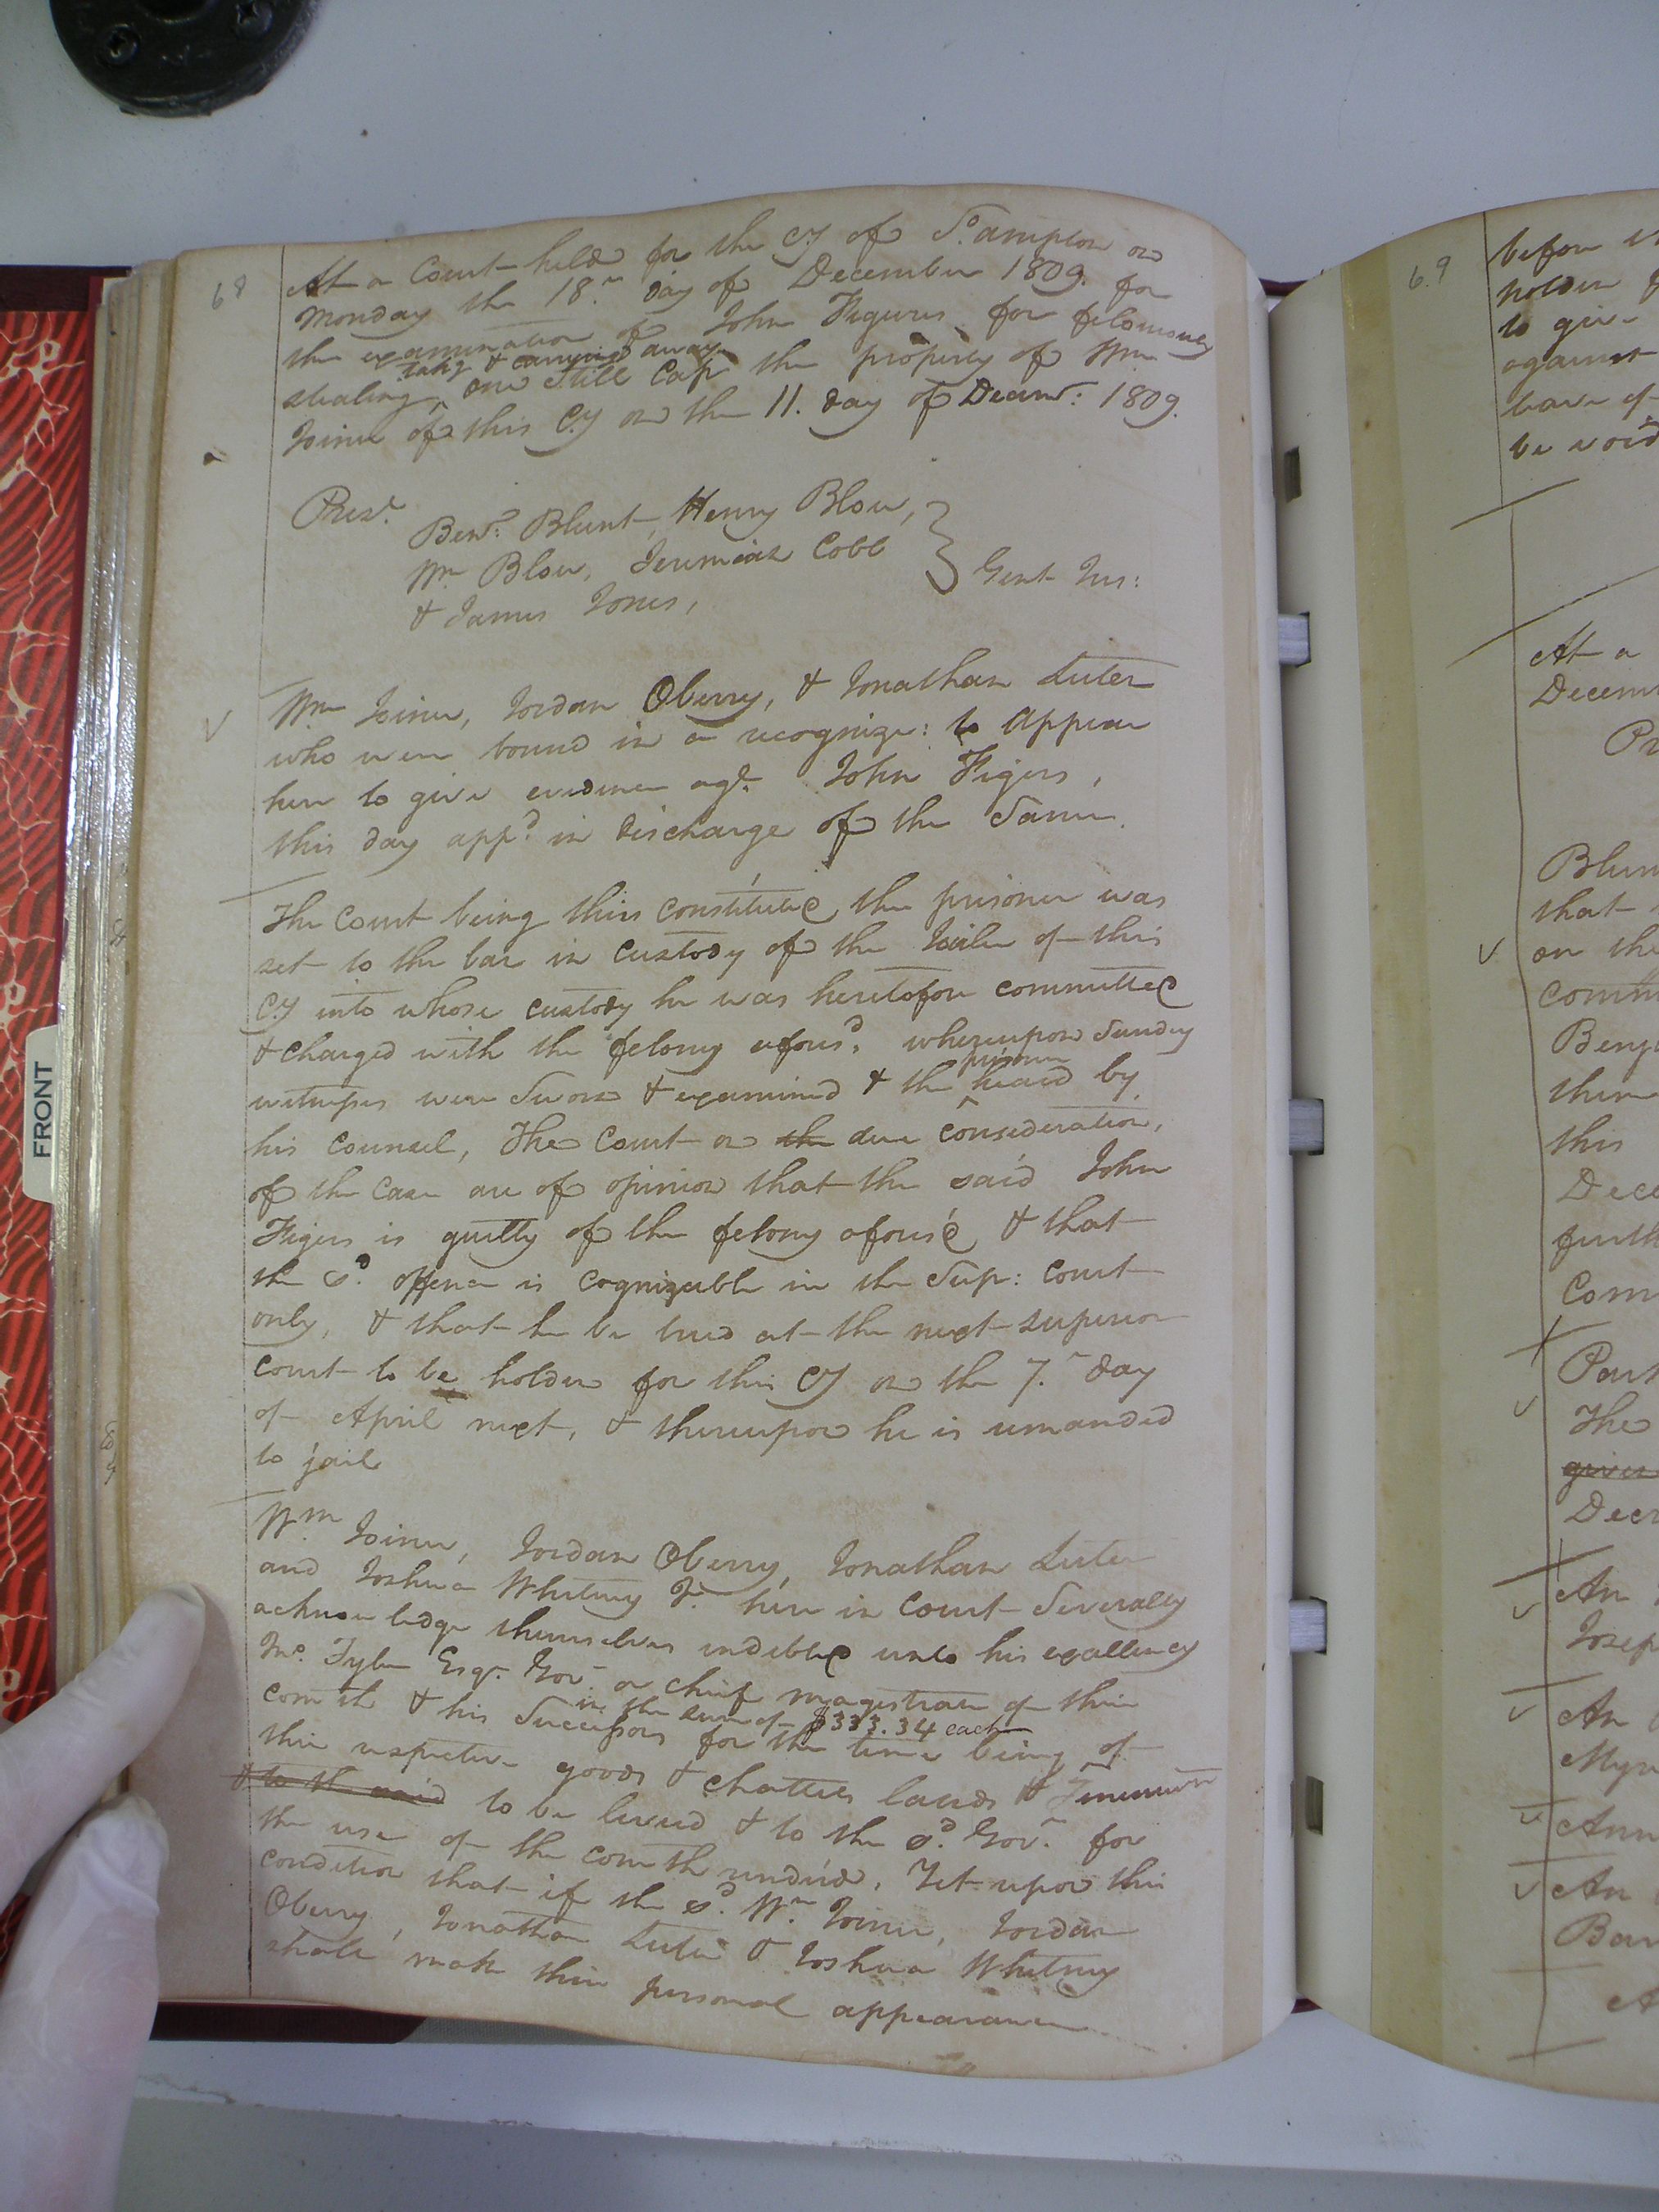 68
At a Court held for the Cy of So.ampton on
Monday the 18th day of December 1809. for
the examination of John Figures for feloniously
takg & carrying away
stealing, ^ one Still Cap the property of Wm
Joiner of this Cy on the 11. day of Decemr: 1809.
Prest.
Benj. Blunt, Henry Blow,
Wm Blow, Jeremiah Cobb
& James Jones,
Gent Jus:
Wm Joiner, Jordan Oberry, & Jonathan Luter
who were bound in a recognize: to appear
here to give evidence agt. John Figers,
this day appd. in discharge of the Same.
The Court being thus constituted the prisoner was
set to the bar in custody of the Jailer of this
Cy into whose custody he was heretofore committed
& charged with the felony aforesd. whereupon Sundry
prisoner
witnesses were Sworn & examined & the ^ heard by
his counsel, The Court on the due consideration,
of the Case are of opinion that the said John
Figers is guilty of the felony aforesd & that
the sd. offence is cognizable in the Sup: Court
only, & that he be tried at the next superior
court to be holden for this Cy on the 7th day
of April next, & thereupon he is remanded
to jail
Wm Joiner, Jordan Oberry, Jonathan Luter
and Joshua Whitney Jr. here in Court Severally
acknowledge themselves indebted unto his excellency
Jno. Tyler Esqr. Govr. or chief magistrate of this
comth & his Successors for the time being
in the sum of $333.34 each
of
their respective goods & chatties lands & Tenements
& to the said to be levied & to the sd. Govr. for
the use of the comth rendered. Yet upon this
condition that if the sd. Wm. Joiner, Jordan
Oberry, Jonathan Luter & Joshua Whitney
shall make their personal appearance
FRONT
69
before
holden
to give
against
leave of
be void
At a
Decem
Pr
Blun
that
on the
comm
Benj
there
this
Dece
furth
Com
The
given
Dece
An
Josep
An
Ann
An
Bar